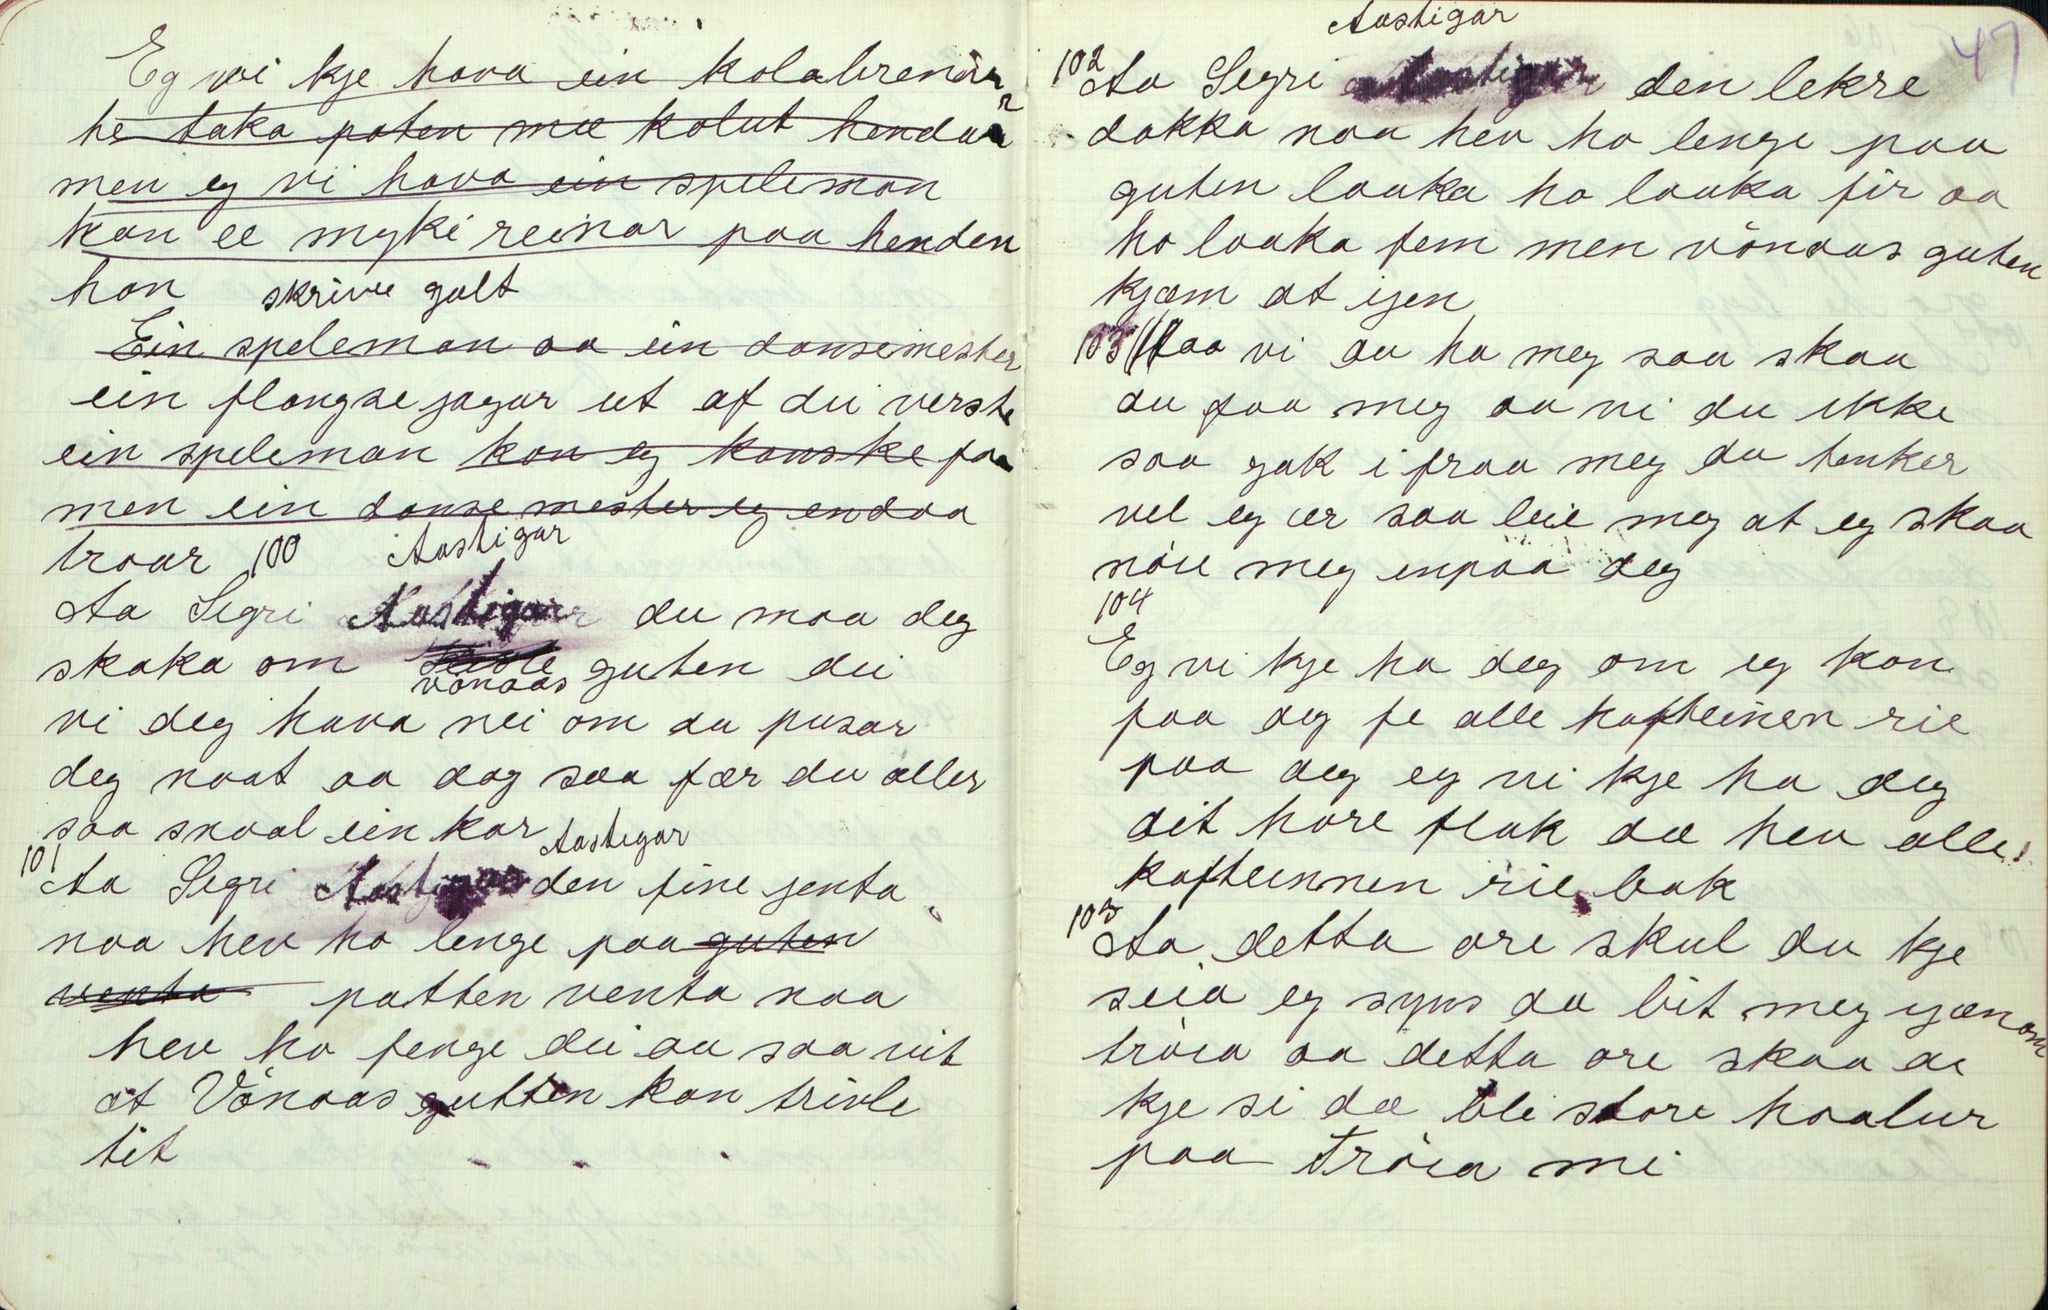 Eg vi kje hava ein kolabrenar
he taka poten mæ kolut hendar
men eg vi hava ein speleman
han ee myki reinar paa henden
han skrive galt
Ein speleman aa ein dansemester
ein flongse jagar ut af dei verste
ein speleman kan eg kanske faa
men ein danse mester eg endaa
traar 100 Aastigar
Aa Segri Aastigar du maa deg
skaka om guten dei
vönaas
vi deg hava nei om du pusar
deg naat aa dag saa fær du aller
saa snaal ein kar Aastigar
101
Aa Segri Aastigar den fine jenta
naa hev ho lenge paa guten
venta patten venta naa
hev ho fenge dei au saa vit
at Vönaas gutten kan trivle
tit
47
Aastigar
102
Aa Segri Aastigar den lekre
dokka naa hev ho lenge paa
guten laaka ho laaka fir aa
ho laaka fem men vönaas guten
kjæm at igen
103 Aaa vi du ha meg saa skaa
du faa meg aa vi du ikke
saa gak i fraa meg du tenker
vel eg ær saa leie meg at eg skaa
nöie meg enpaa deg
104
Eg vi kje ha deg om eg kan
faa deg fe alle kafteinen rie
paa deg eg vi kje ha deg
dit hore flak dæ hev alle
kafteinnen rie bak
103
Aa detta ore skul du kje
seia eg syns du bit meg igænom
tröia aa detta ore skaa du
kje si dæ bli store haalur
paa Tröia mi